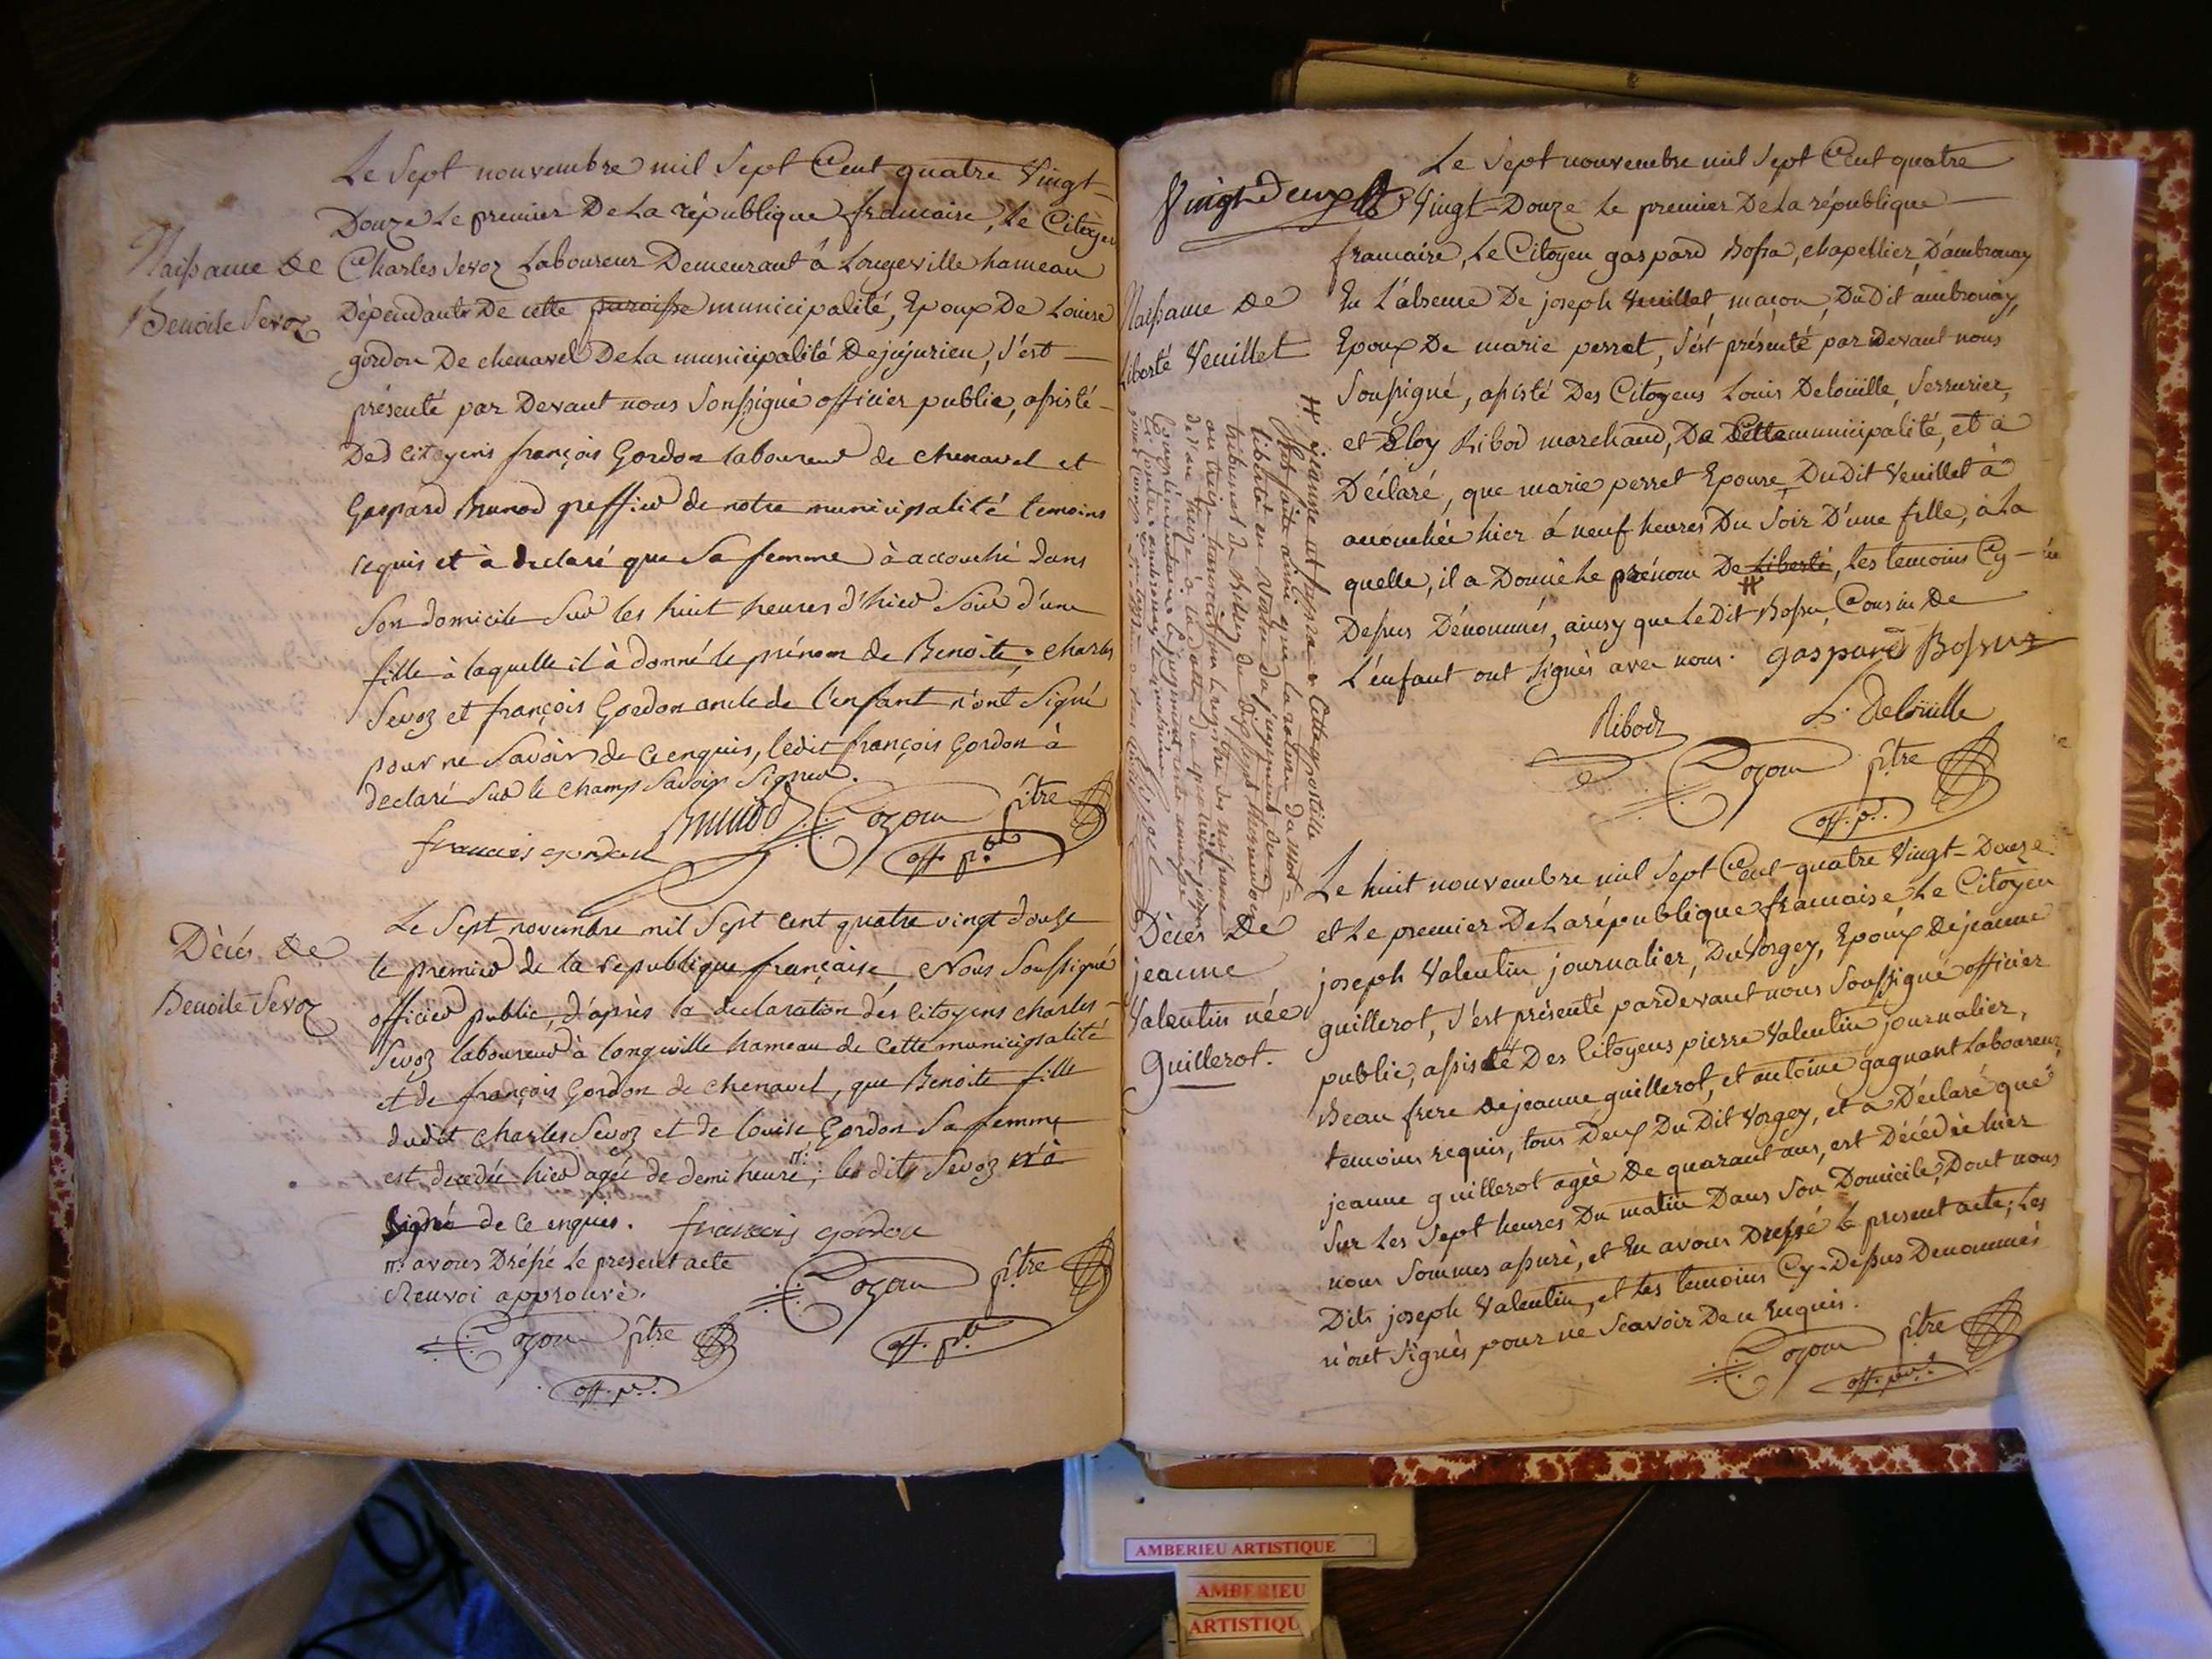 Le Sept nouvembre mil Sept Cent quatre Vingt-
Douze Le premier De La république francaire, Le Citoyen
Naissance de
Benoite Sevoz
Charles Sevoz Laboureur Demeurant à Longeville hameau
Dépendante De cette paroisse municipalité, Epoux De Louise
gordon De chenavel De La municipalité de jujurieu, s'est
présenté par Devant nous Soussigné officier public, assisté
Des Citoyens françois Gordon laboureur de Chenavel et
Gaspard Brunod greffier de notre municipalité temoins
requis et à declaré que Sa femme à accouché dans
Son domicile Sur les huit heures d'hier Soir d'une
fille à laquelle il à donné le prénom de Benoite, Charles
Sevoz et françois Gordon oncle de l'enfant n'ont Signé
pour ne Savoir de ce enquis, ledit françois Gordon à
declaré Sur le Champ Savoir Signer.
francois gordon Brunod Cozon ptre
off. pb.
Décés de
Benoite Sevoz
Le Sept novembre mil Sept cent quatre vingt douze
le premier de la republique françaïse, Nous Soussigné
officier public, d'après la declaration des Citoyens charles
Sevoz laboureur à longeville hameau de Cette municipalité
et de françois Gordon de chenavel, que Benoite fille
dudit charles Sevoz et de louise Gordon Sa femme
est decedée hier agée de demi heure ; ledits Sevoz n'à
Signé de ce enquis. francois gordon
avons Dréssé Le present acte
Renvoi approuvé.
Cozon ptre
off. pb.
Cozon ptre
off. pu.
Vingt Deux
Le Sept nouvembre mil Sept Cent quatre
Vingt-Douze Le premier De La république
francaire, Le Citoyen gaspard Bossu, chapellier, D'ambronay
Naissance de
Liberté Veuillet
En L'absence De joseph Veuillet, maçon, Du Dit ambronay,
Epoux De marie perret, s'ést présenté par Devant nous
Soussigné, assisté Des Citoyens Louis Delouille, Serrurier,
et Eloy Ribod marchand, De Cette municipalité, et à
Déclaré, que marie perret Epouse Du Dit Veuillet à
accouchée hier à neuf heures Du Soir D'une fille, à La
quelle, il a Donné Le prénom De Liberté, Les temoins Cy-
Dessus Dénommés, ainsy que Le Dit Bossu, Cousin De
L'enfant ont Signés avec nous. gaspard Bossu
Ribod L. Delouille
Cozon ptre
off. p.
Cette apostille
est faite ainsi que la rature du mot
liberté en vertu du jugement du
tribunal de
Décés De
jeanne
Valentin née
Guillerot.
Le huit nouvembre mil Sept Cent quatre Vingt-Douze
et Le premier De La république francaise Le Citoyen
joseph Valentin journalier, Du Vorgey, Epoux De jeanne
guillerot, s'est présenté pardevant nous Soussigné officier
public, assisté Des Citoyens pierre Valentin journalier,
Beau frere de jeanne guillerot, et antoine gagnant Laboureur,
temoins requis, tous Deux Du Dit Vorgey, et a Déclaré que
jeanne guillerot agée De quarant ans, est Décédée hier
Sur Les Sept heures Du matin Dans Son Domicile, Dont nous
nous Sommes assuré, et En avons Dressé le present acte; Les
Dits joseph Valentin, et les temoins Cy-Dessus Denommés
n'ont Signés pour ne Scavoir De ce Enquis.
Cozon ptre
off. pu.
AMBERIEU ARTISTIQUE
AMBERIEU
ARTISTIQU